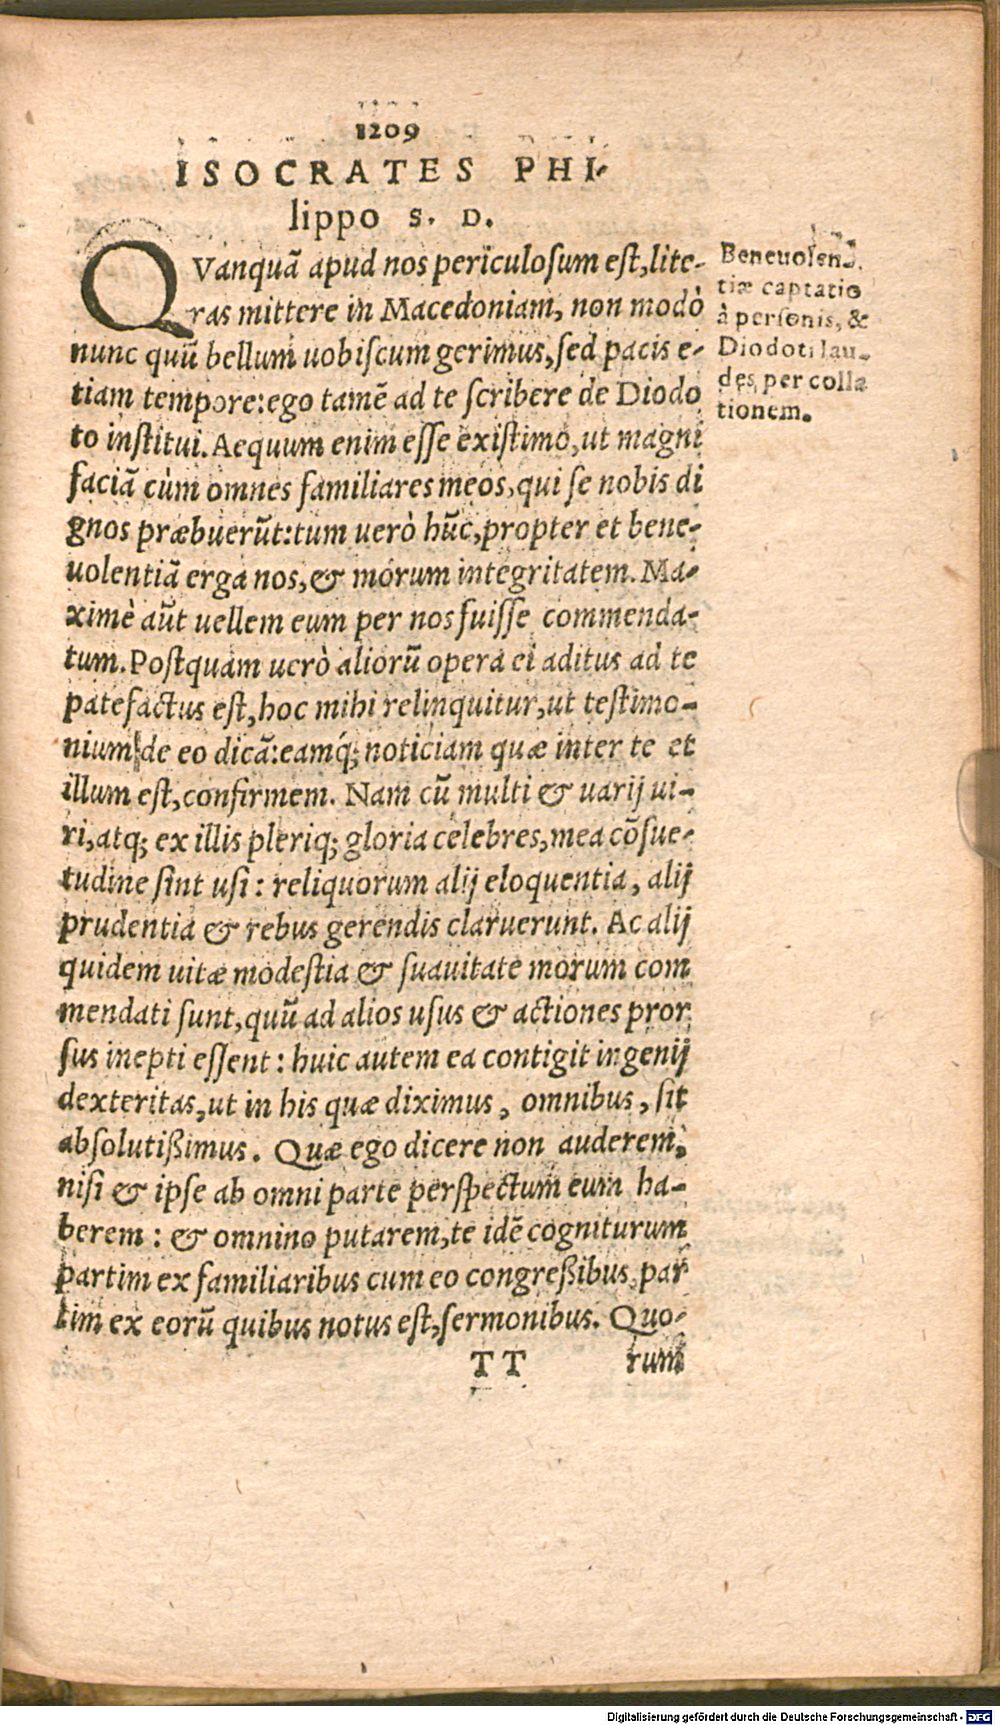 1209
ISOCRATES PHI-
lippo S. D.
QVanquā apud nos periculosum est, lite-
ras mittere in Macedoniam, non modò
nunc quū bellum uobiscum gerimus, sed pacis e-
tiam tempore: ego tamē ad te scribere de Diodo
to institui. Aequum enim esse existimo, ut magni
faciā cùm omnes familiares meos, qui se nobis di
gnos præbuerūt: tum uerò hūc, propter et bene-
uolentiā erga nos, & morum integritatem. Ma-
ximè aūt uellem eum per nos fuisse commenda-
tum. Postquam uerò aliorū opera ei aditus ad te
patefactus est, hoc mihi relinquitur, ut testimo-
nium de eo dicā: eamq́; noticiam quæ inter te et
illum est, confirmem. Nam cū multi & uarij ui-
ri, atq; ex illis pleriq; gloria celebres, mea cōsue-
tudine sint usi: reliquorum alij eloquentia, alij
prudentia & rebus gerendis claruerunt. Ac alij
quidem uitæ modestia & suauitate morum com
mendati sunt, quū ad alios usus & actiones pror
sus inepti essent: huic autem ea contigit ingenij
dexteritas, ut in his quæ diximus, omnibus, sit
absolutißimus. Quæ ego dicere non auderem,
nisi & ipse ab omni parte perspectum eum ha-
berem: & omnino putarem, te idē cogniturum
partim ex familiaribus cum eo congreßibus, par
tim ex eorū quibus notus est, sermonibus. Quo-
TT rum
Beneuolen-
tiæ captatio
à personis, &
Diodoti lau-
des, per colla
tionem.
Digitalisierung gefördert durch die Deutsche Forschungsgemeinschaft - DFG